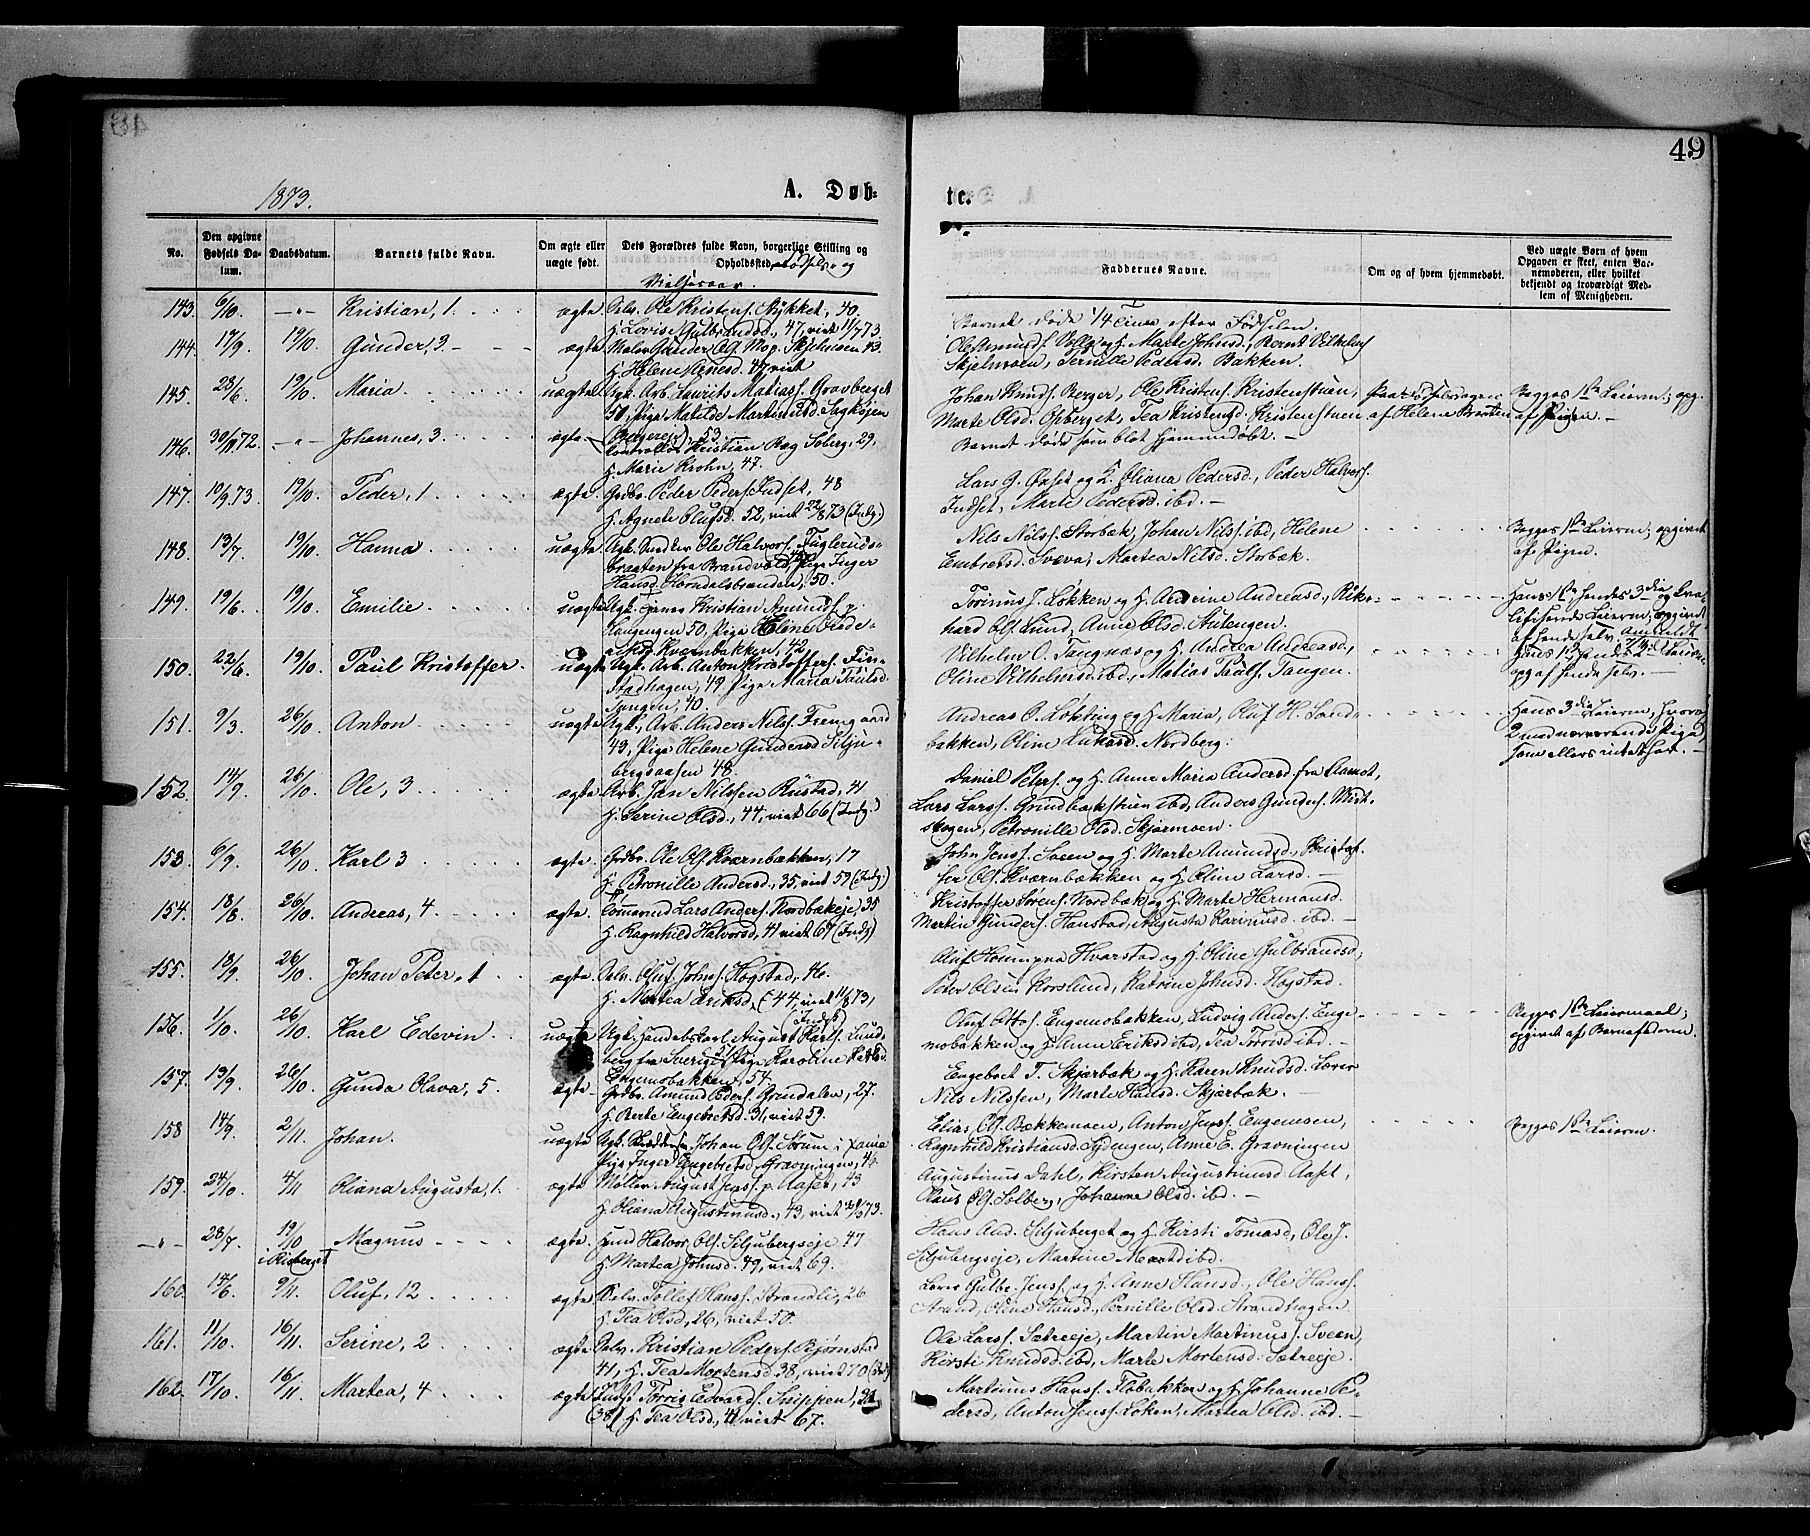 49
1873.
A. Døb-
te.
No.
Den opgivne Fødsels Datum.
Daabsdatum.
Barnets fulde Navn.
Om ægte eller uægte født.
Dets Forældres fulde Navn, borgerlige Stilling og Opholdsted, Fødsels- og Vielsesaar.
Faddernes Navne.
Om og af hvem hjemmedøbt.
Ved uægte Børn af hvem Opgaven er skeet, enten Barnemoderen, eller hvilket bekjendt og troværdigt Medlem af Menigheden.
143. 6/10. -"- Kristian, 1. ægte. Selv. Ole Kristens. Stykket, 40.
H. Lovise Gulbrandsd., 47, viet 11/7 73
Barnet døde 1/4 Time efter Fødselen.
144. 17/9 19/10. Gunder, 3. ægte
H. Helene 47, viet
Ole Amunds. Vollg. og H. Marte Johnsd., Bernt Vilhelms.
Skjelmoen, Pernille Pedersd. Bakken.
145. 23/6. 19/10 Maria uægte Ugk. Arb. Laurits Matias. Gravberget
50, Pige Matilde Martinusd. Sagkojen
Bergereje, 53.
Johan Knuds. Berger, Ole Kristens. Kristenstuen,
Marte Olsd. Opberget, Tea Kristensd. Kristenstuen
af Helene Braaten
Begges 1ste Leierm; opg.
af Pigen. -
146. 30/11 72. -"- Johannes, 3 ægte Kristian Rag Soberg, 29,
H. Marie Krohn, 47.
Barnet døde som blot hjemmedøbt. -
147. 10/9 73 19/10. Peder, 1 ægte. Grdbr. Peder Peders. Indset, 48
H. Agnete Olufsd. 52, viet 22/8 73 (Indg.)
Lars G. og H. Oliana Pedersd., Peder Halvors.
Indset, Marte Pedersd. ibd. -
148. 13/7. 19/10 Hanna uægte Ugk. Smed Ole Halvors. Fuglerud-
braaten fra Brandvold, Pige Inger
Hansd. Horndalsbraaten, 50.
Nils Nils. Storbæk, Johan Nils. ibd, Helene
Embretsd. Svæva, Martea Nilsd. Storbæk.
Begges 1ste Leierm, opgivet
af Pigen.
149. 19/6. 19/10. Emilie uægte Ugk. Kristian Amunds. p.
Langengen 50, Pige Helene
Kværnbakken, 42
Torinus J. Løkken og H. Andrine Andreasd., Rik-
hard Ols. Lund, Anne Olsd. Aulengen.
Hans 1ste hendes 3die og
Leierm, opgivet
af hende selv.
150. 22/6. 19/10 Paul Kristoffer. uægte Ugk. Arb. Anton Kristoffers. Fin-
stadhagen, 49 Pige Maria Paulsd.
Tangen, 40.
Vilhelm O. Tangnæs og H. Andrea Andreasd.,
Oline Vilhelmsd. ibd., Matias Paals. Tangen.
Hans 1ste hendes 2den Leierm.
opg af hende selv. -
151. 9/3 26/10 Anton uægte Ugk. Arb. Anders Nils. Fremgaard
43, Pige Helene Gundersd Silju-
bergsaasen 48.
Andreas O. Løkting og H. Maria, Oluf H. Sand-
bakken, Oline Nordberg.
Hans 3die Leierm, hvoraf
2 med nærværende Pige
som ellers intet har. -
152. 14/9 26/10. Ole, 3 ægte Arb. Jan Nilssen Rustad, 41
H. Serine Olsd., 44, viet 66 (Indg.)
Daniel Peters. og H. Anne Maria Andersd. fra Aamot,
Lars Lars. Grindbækstuen ibd, Anders Gunders. Midt-
skogen, Petronille Olsd. Skjørmoen.
153. 6/9. 26/10 Karl 3 ægte. Grdbr. Ole Ols. Kværnbakken, 17
H. Petronille Andersd., 35, viet 59 (Indg.)
John Jens. Sveen og H. Marte Amundsd., Kristof-
fer Ols. Kværnbækken og H. Oline Larsd. -
154. 18/8. 26/10 Andreas, 4. ægte. Tømmermd Lars Anders. Nordbækeje, 35
H. Ragnhild Halvorsd, 41 viet 67 (Indg)
Kristoffer Sørens. Nordbæk og H. Marte Hermansd.
Martin Gunders. Hanstad, Augusta Karinusd. ibd. -
155. 18/9. 26/10. Johan Peter, 1 ægte. Selv. Oluf Johns. Høgstad, 46.
H. Martea Eriksd., 44, viet 11/8 73,
(Indg.)
Oluf fra Hvarstad og H. Oline Gulbrandsd,
Peter Olsen Korslund, Katrine Johnsd. Høgstad.
156. 1/10. 26/10. Karl Edevin. uægte Ugk. Handelskarl August Karls. Lund-
berg fra Sverige, Pige Karoline
Engemobakken, 54.
Oluf Ottos. Engemobakken, Ludvig Anders. Enge-
mobakken og H. Anne Eriksd ibd, Tea Torsd ibd. -
Begges 1ste Leiermaal;
opgivet af Barnefaderen.
157. 13/9. 26/10 Gunda Olava, 5. ægte. Grdbr. Amund Peders. Grindalen, 27.
H. Berte Engebretsd. 31, viet 59.
Engebret T. Skjærbæk og H. Karen Knudsd. Lærer
Nils Nilsen, Marte Hansd. Skjærbæk. -
158 14/9. 2/11. Johan. uægte Ugk. Johan Ols. Strøm i Xania
Pige Inger Engebretsd. Gravningen, 46
Elias Ols. Bækkemoen, Anton Jens. Engemoen,
Ragnhild Kristiansd. Sydengen, Anne E. Gravningen
Begges 1ste Leierm.
159. 24/10. 4/11 Oliana Augusta, 1. ægte Møller August Jens. p. Aaset, 43
H. Oliana Augustinusd., 43, viet 73.
Augustinus Dahl, Kirsten Augustinusd. Aaset,
Klaus Ols. Solberg, Johanne Olsd. ibd. -
-"- 28/7. 19/10 i Risberget Magnus ægte. Halvor Ols. Siljubergseje 47
H. Martea Johnsd. 49, viet 69.
Hans And. Siljuberget og H. Kirsti Tomasd, Ole J.
Siljubergseje, Martine ibd.
160. 14/6. 9/11. Oluf, 12 ægte Selv. Tollef Hans. Strandli, 26
H. Tea Olsd, 26, viet 50.
Lærer Gulbr. Jens. og H. Anne Hansd., Ole Hans.
Strand, Oline Hansd., Pernille Olsd. Strandhagen.
161. 11/10. 16/11. Serine, 2 ægte Selv. Kristian Peders. Bjørnstad
41, H. Tea Mortensd 38, viet 70
Ole Lars. Sætreeje, Martin Martinus. Sveen,
Kirsti Knudsd. ibd, Marte Mortensd. Sætreeje.
162. 17/10. 16/11. Martea, 4 ægte Torris Edvards. Snippen,
(38), H. Tea Olsd., 41 viet 67.
Martinus Hans. Flobakken og H. Johanne Pe-
dersd, Anton Jens. Løken, Martea Olsd. ibd. -